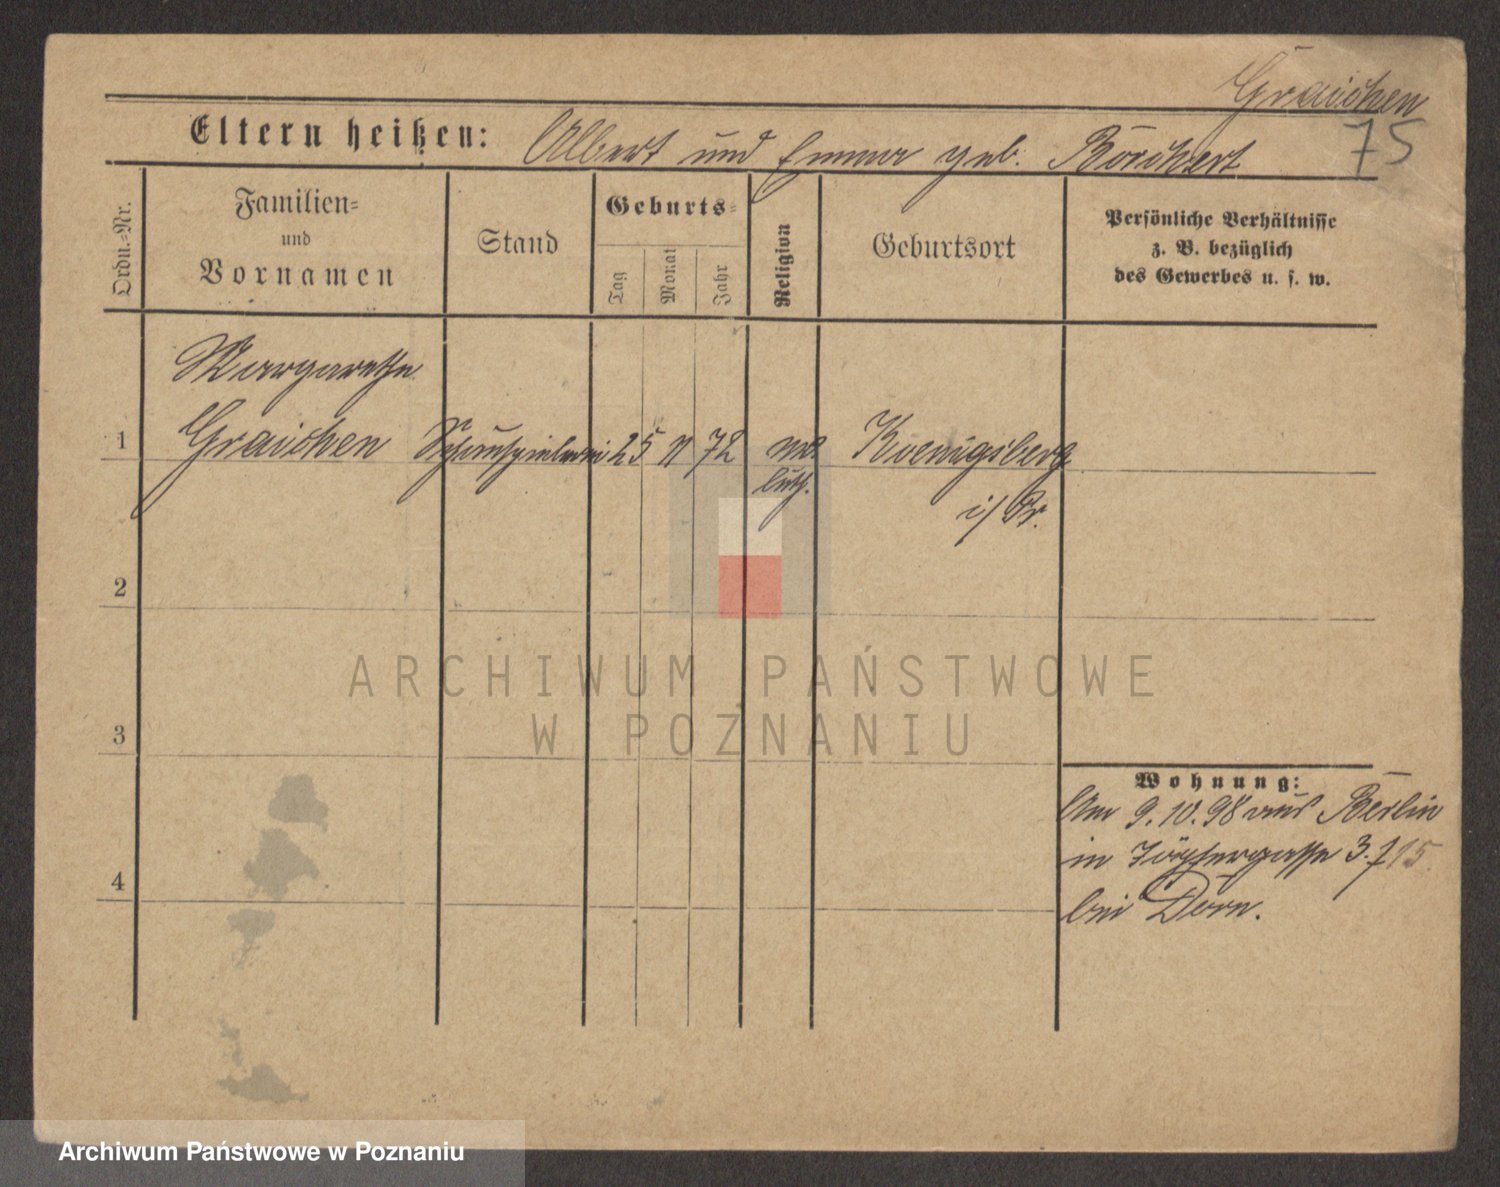 Graichen
75
Eltern heißen: Albert und Emma geb. Borchert
Ordn.-Nr.
Familien-
und
Vornamen
Stand
Geburts-
Tag
Monat
Jahr
Religion
Geburtsort
Persönliche Verhältnisse
z. B. bezüglich
des Gewerbes u. s. w.
Margarethe
1 Graichen Schauspielerin 25 72 Koenigsberg
luth. i/ Pr.
2
ARCHIWUM PAŃSTWOWE
W POZNANIU
3
Wohnung:
Am 9.10.98 aus Berlin
in Töpfergasse 3.
4
bei Dorn.
Archiwum Państwowe w Poznaniu